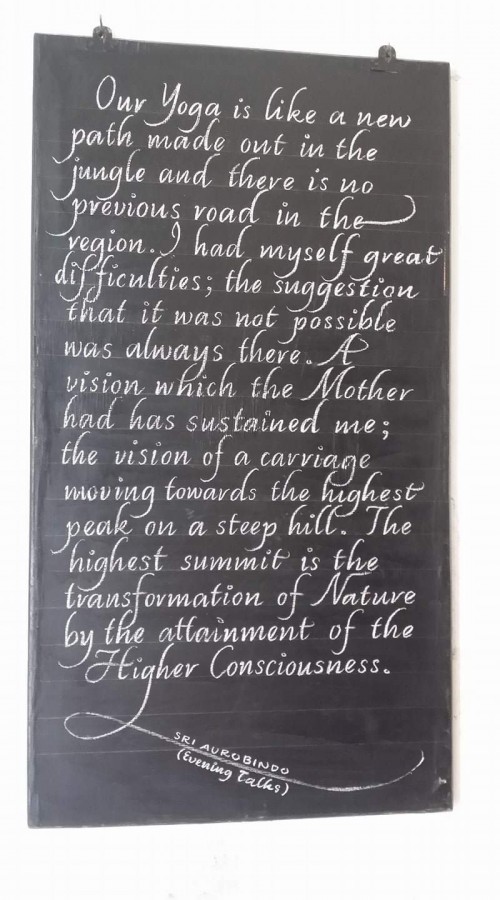 Our Yoga is like a new
path made out in the
jungle and there is no
previous road in the
region. I had myself great
difficulties; the suggestion
that it was not possible
was always there. A
vision which the Mother
had has sustained me;
the vision of a carriage
moving towards the highest
peak on a steep hill. The
highest summit is the
transformation of Nature
by the attainment of the
Higher Consciousness.
SRI AUROBINDO
(Evening Talks)